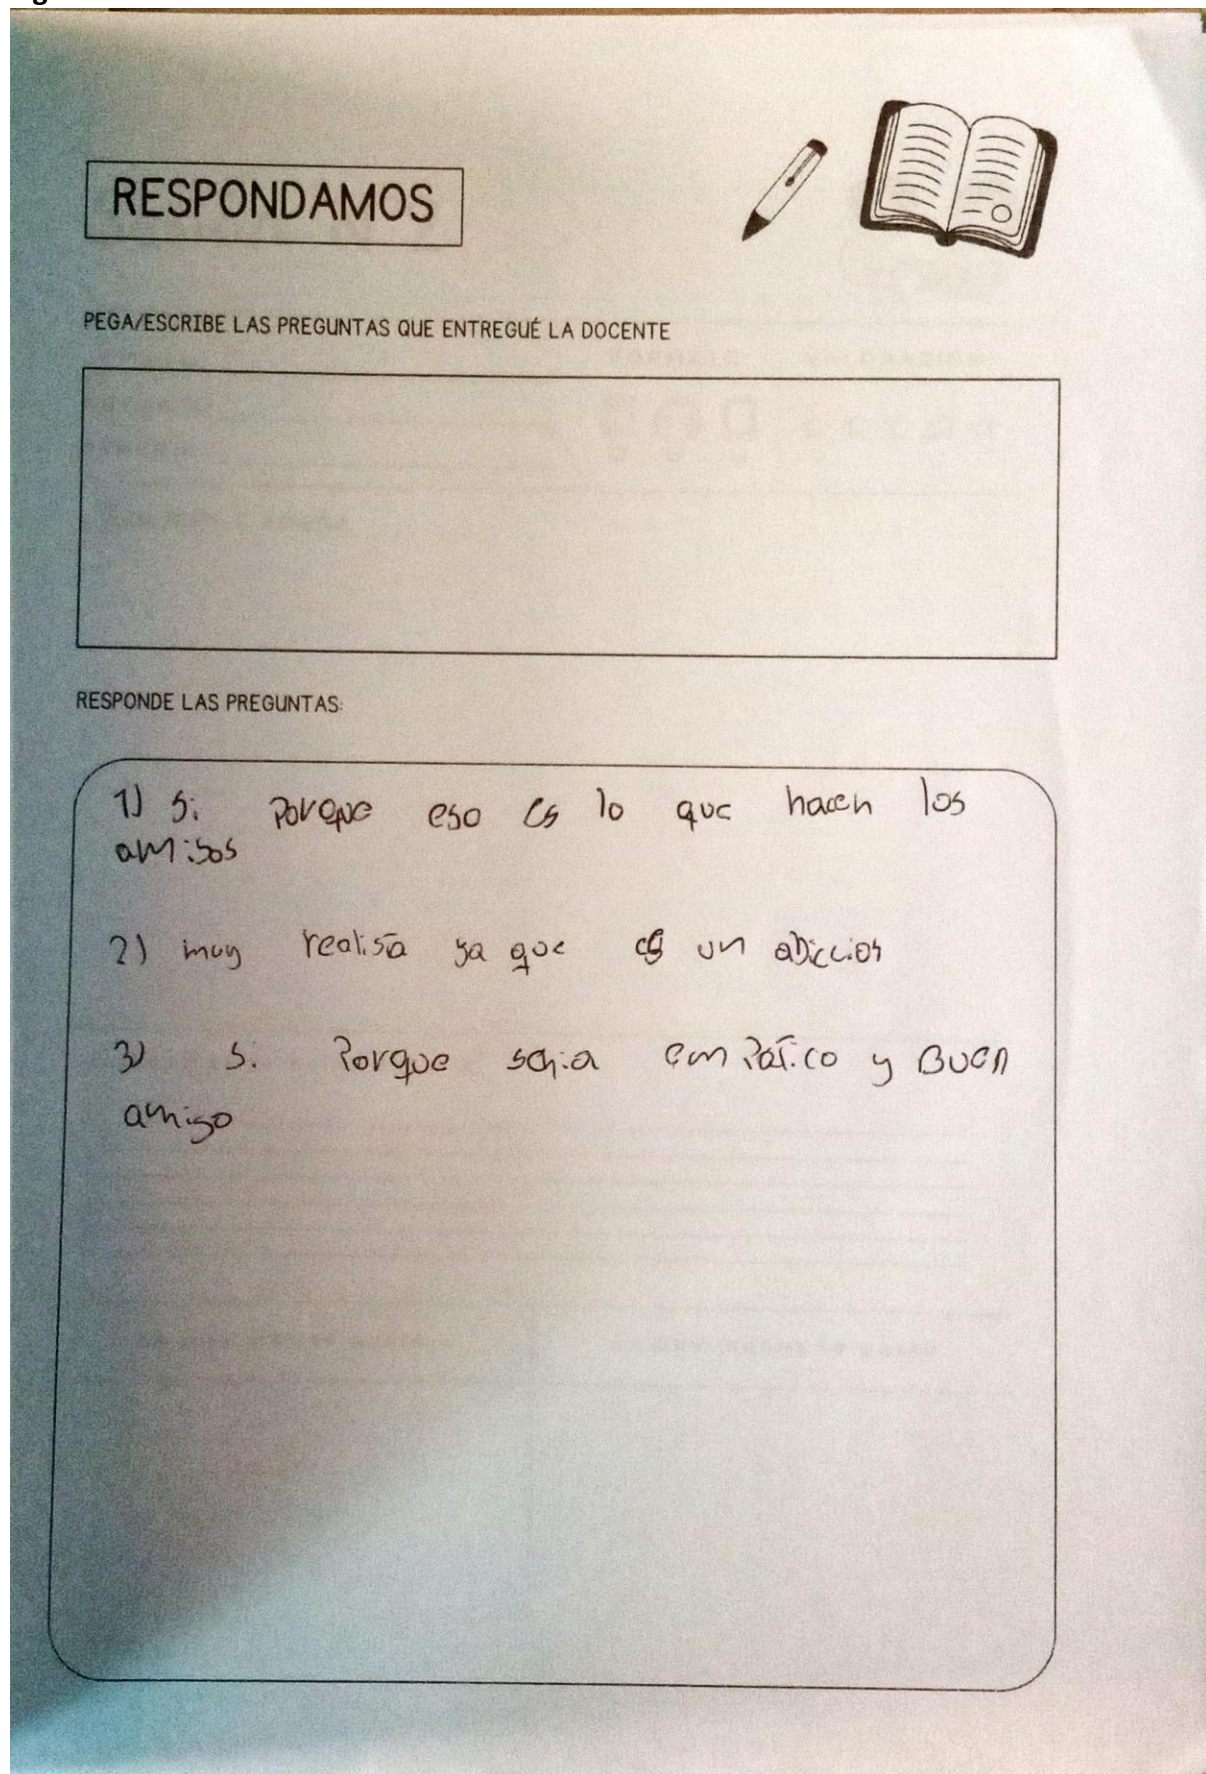 RESPONDAMOS
PEGA/ESCRIBE LAS PREGUNTAS QUE ENTREGUÉ LA DOCENTE
RESPONDE LAS PREGUNTAS:
1) Si Porque eso es lo que hacen los
amigos
2) muy realista ya que es un adiccion
3) Si Porque seria empatico y Buen
amigo